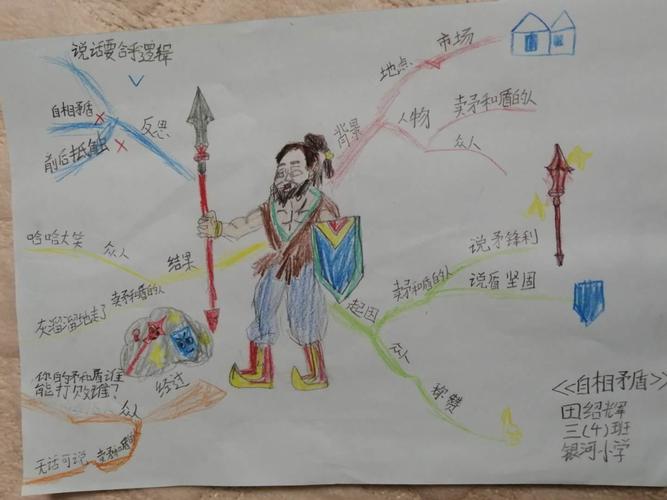 说话要合乎逻辑
自相矛盾
前后抵触
反思
背景
地点
市场
人物
卖矛和盾的人
众人
起因
卖矛和盾的人
说矛锋利
说盾坚固
众人
称赞
经过
众人
你的矛和盾谁
能打败谁?
卖矛和盾的人
无话可说
结果
众人
哈哈大笑
卖矛和盾的人
灰溜溜地走了
<<自相矛盾>>
田绍辉
三(4)班
银河小学